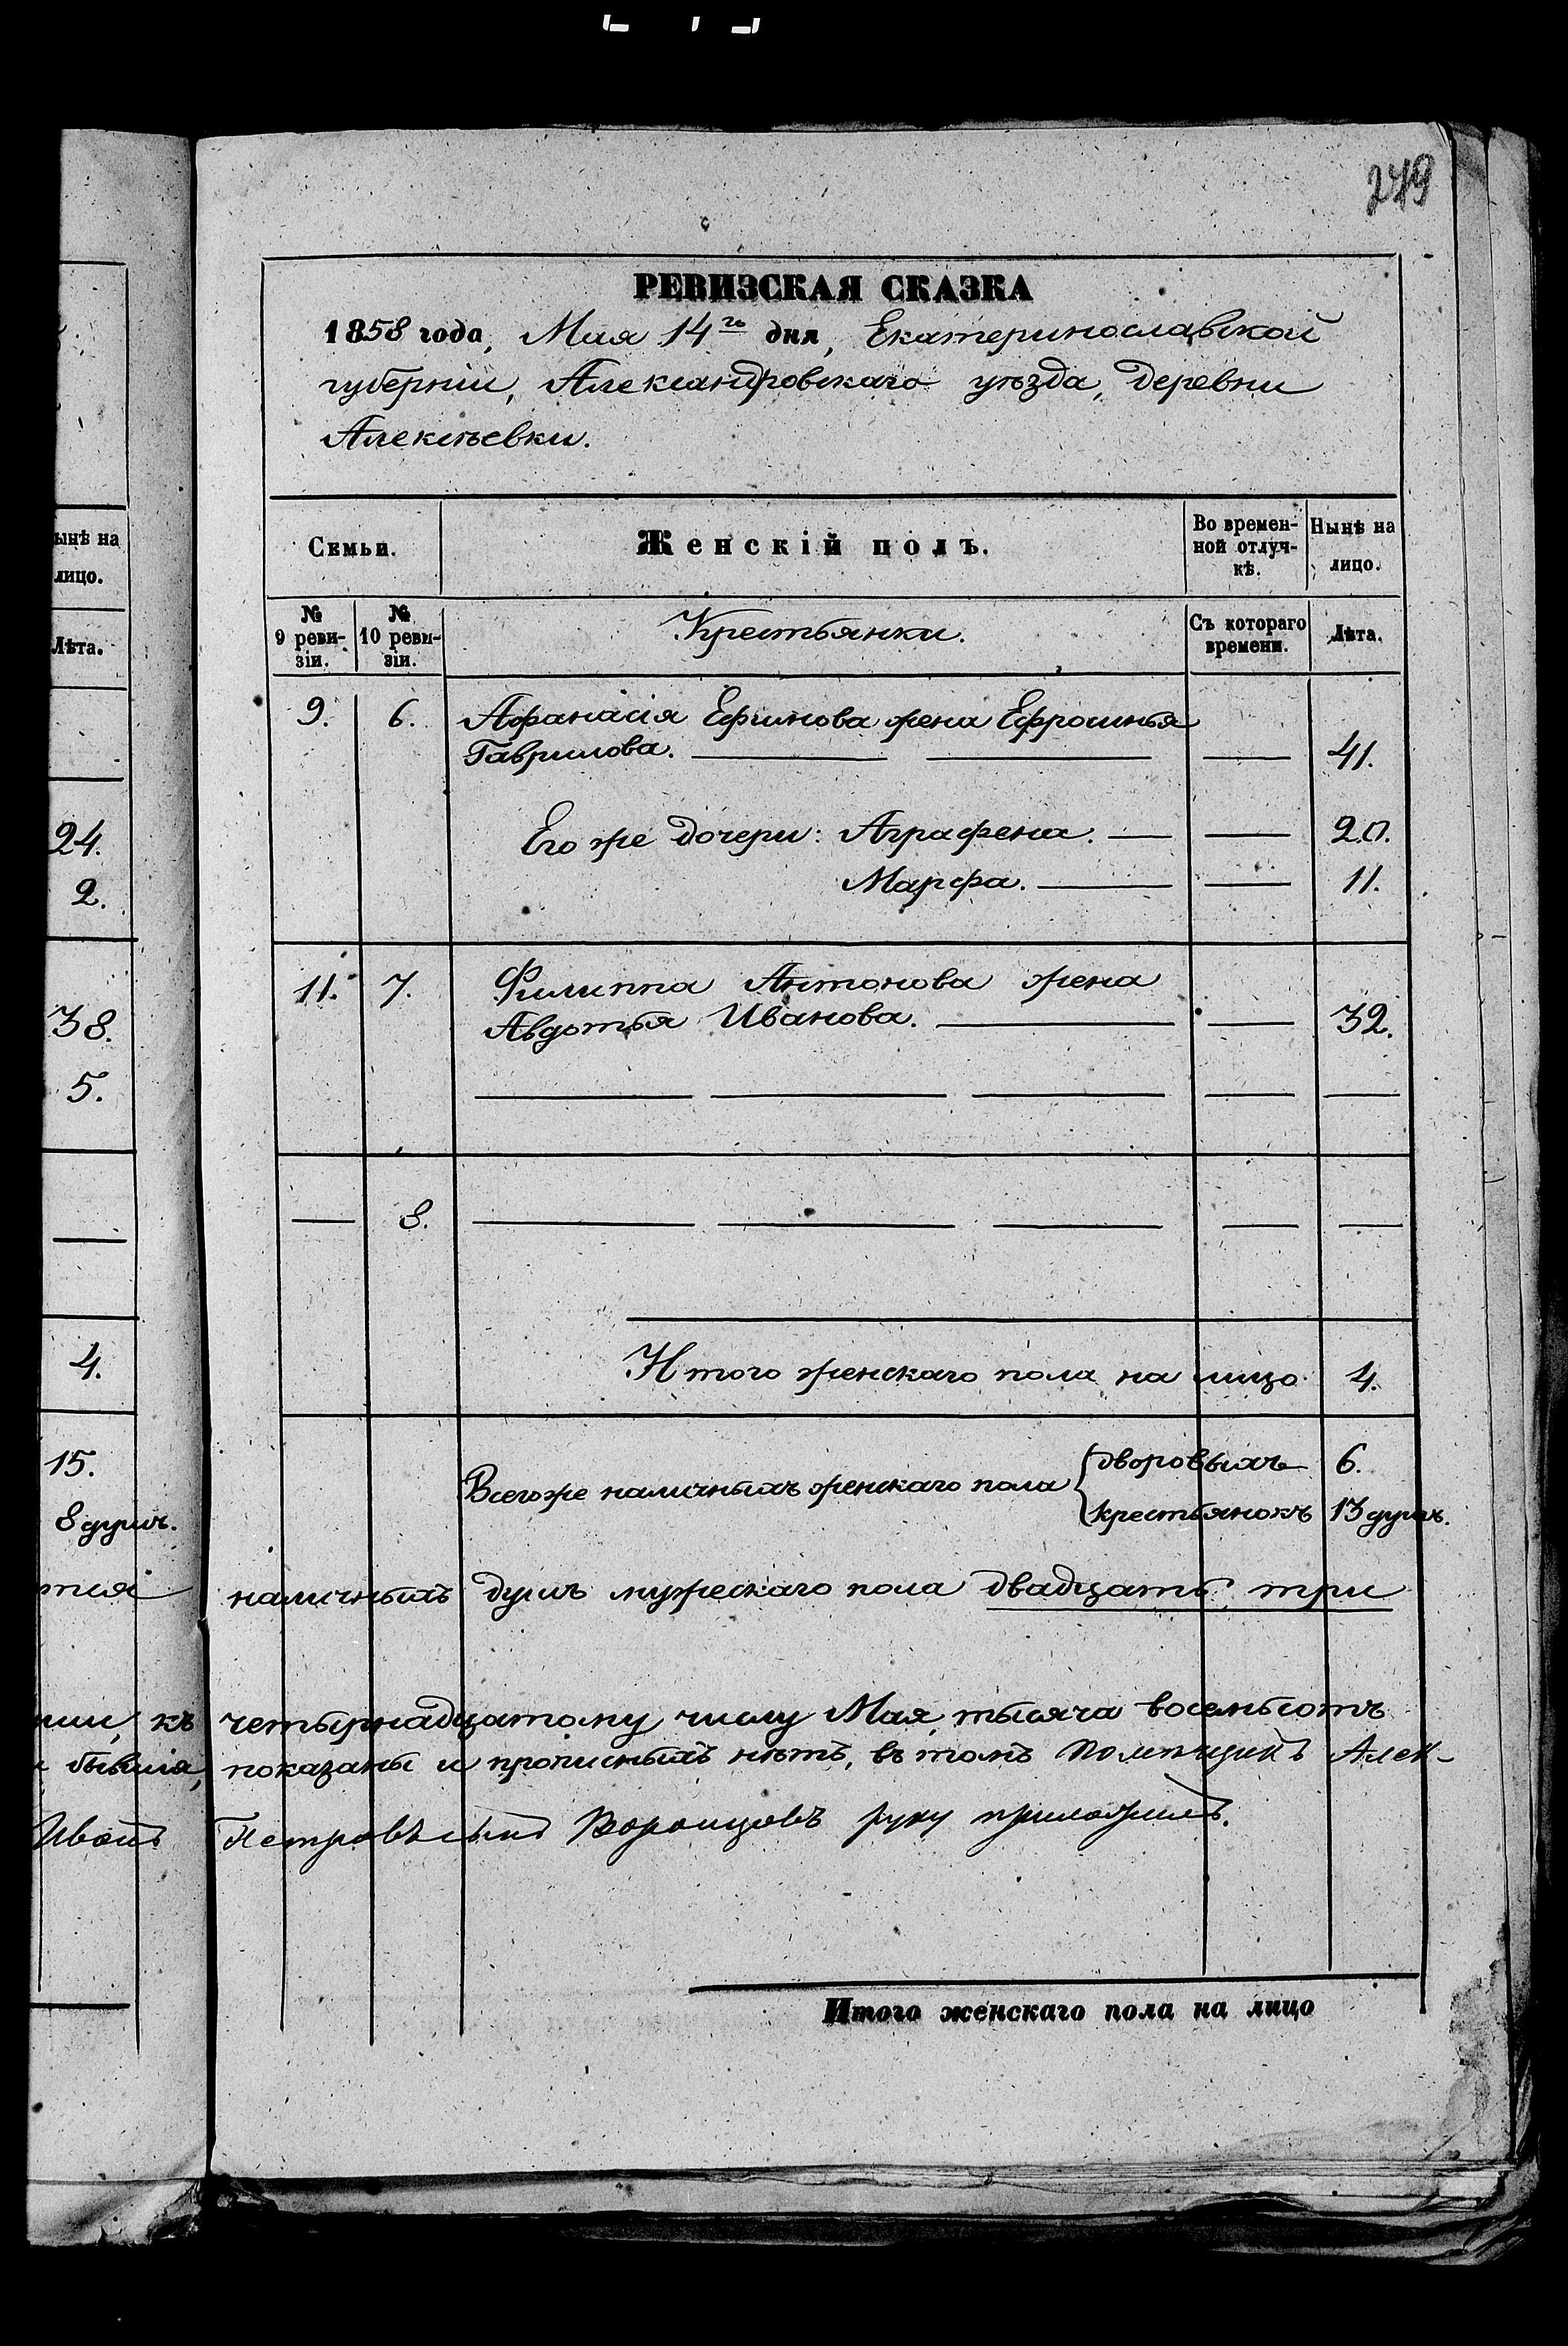 279
РЕВИЗСКАЯ СКАЗКА
1858 года, Мая 14го дня, Екатеринославской
губерніи, Александровскаго уѣзда, деревни
Алексѣевки.
ынѣ на
лицо.
Лѣта.
24.
2.
38.
5.
4.
15.
8 душъ.
Семьи.
Женскій полъ.
Во времен-
ной отлуч-
кѣ.
Нынѣ на
лицо.
№
9 реви-
зіи.
№
10 реви-
зіи.
Крестьянки.
Съ котораго
времени.
Лѣта.
9. 6. Афанасія Ефимова жена Ефросинья
Гаврилова. 41.
Его же дочери: Аграфена. 20.
Марфа. 11.
11. 7. Филиппа Антонова жена
Авдотья Иванова. 32.
8.
Итого женскаго пола на лицо 4.
Всего же наличныхъ женскаго пола { дворовыхъ 6.
крестьянокъ 13 душъ.
наличныхъ душъ мужескаго пола двадцать три
къ четырнадцатому числу Мая, тысяча восемьсотъ
показаны и прописныхъ нѣтъ, въ томъ помѣщикъ Алек-
Ивань Петровъ сынъ Воронцовъ руку приложилъ.
Итого женскаго пола на лицо